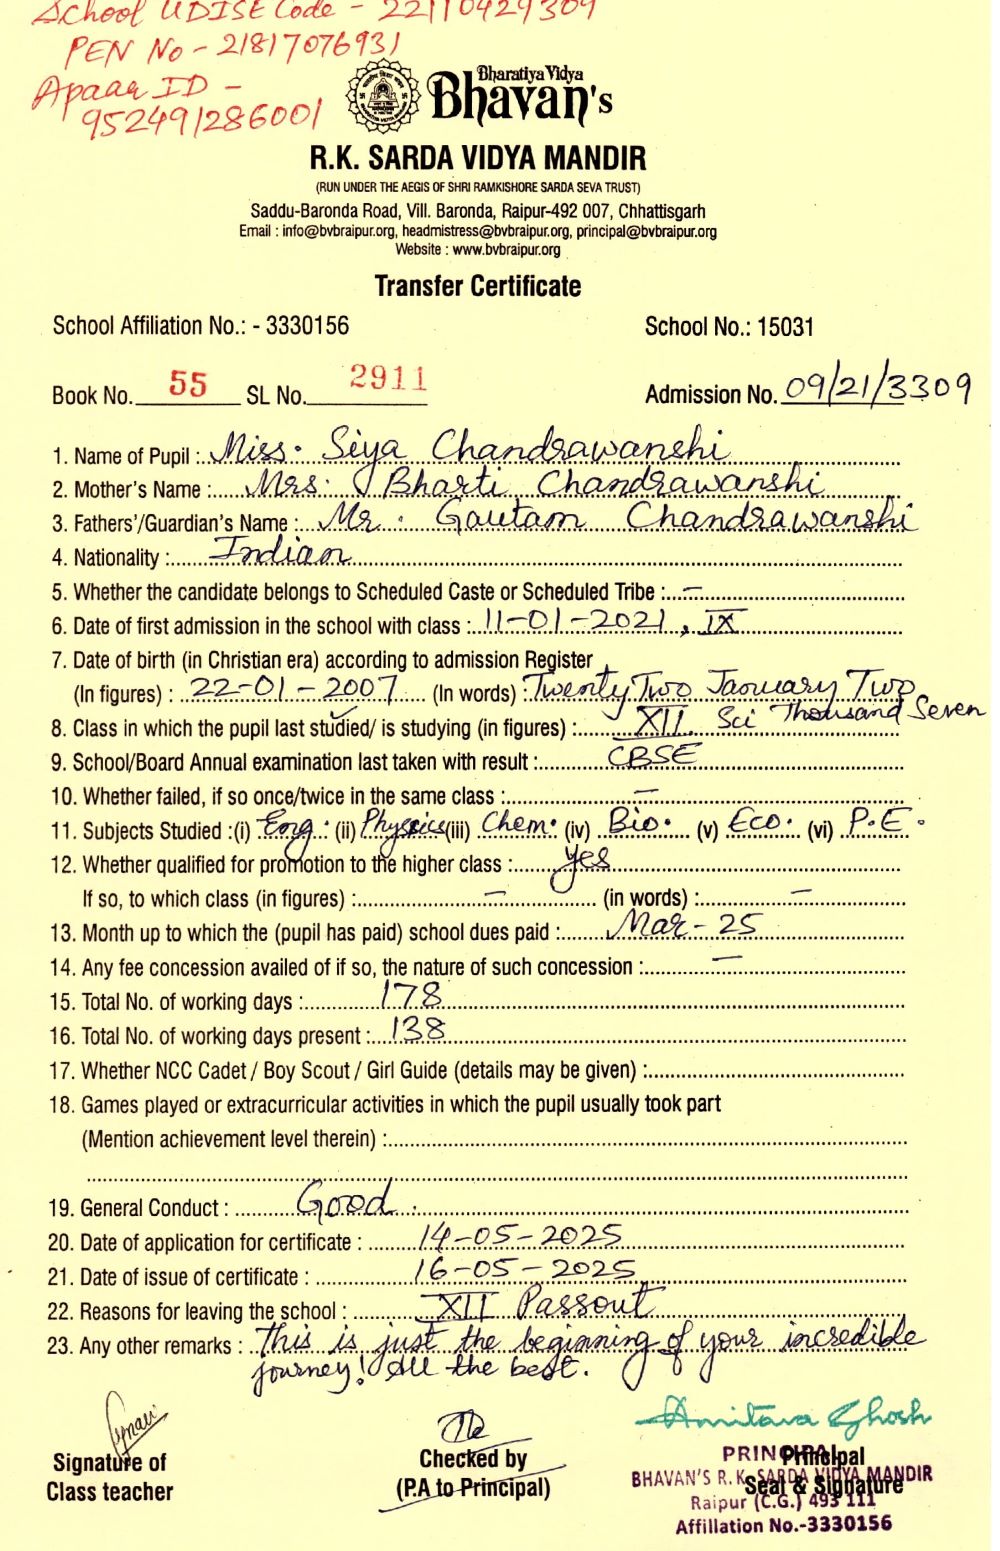 School UDISE Code - 22110429309
PEN No - 21817076931
Apaar ID -
952491286001
Bharatiya Vidya
Bhavan's
R.K. SARDA VIDYA MANDIR
(RUN UNDER THE AEGIS OF SHRI RAMKISHORE SARDA SEVA TRUST)
Saddu-Baronda Road, Vill. Baronda, Raipur-492 007, Chhattisgarh
Email : info@bvbraipur.org, headmistress@bvbraipur.org, principal@bvbraipur.org
Website : www.bvbraipur.org
Transfer Certificate
School Affiliation No.: - 3330156 School No.: 15031
Book No. 55 SL No. 2911 Admission No. 09/21/3309
1. Name of Pupil : Miss. Siya Chandrawanshi
2. Mother's Name : Mrs. Bharti Chandrawanshi
3. Fathers'/Guardian's Name : Mr. Gautam Chandrawanshi
4. Nationality : Indian
5. Whether the candidate belongs to Scheduled Caste or Scheduled Tribe : -
6. Date of first admission in the school with class : 11-01-2021, IX
7. Date of birth (in Christian era) according to admission Register
(In figures) : 22-01-2007 (In words) : Twenty Two January Two
Thousand Seven
8. Class in which the pupil last studied/ is studying (in figures) : XII Sci
9. School/Board Annual examination last taken with result : CBSE
10. Whether failed, if so once/twice in the same class : -
11. Subjects Studied :(i) Eng. (ii) Physics (iii) Chem. (iv) Bio. (v) Eco. (vi) P.E.
12. Whether qualified for promotion to the higher class : yes
If so, to which class (in figures) : - (in words) : -
13. Month up to which the (pupil has paid) school dues paid : Mar-25
14. Any fee concession availed of if so, the nature of such concession : -
15. Total No. of working days : 178
16. Total No. of working days present : 138
17. Whether NCC Cadet / Boy Scout / Girl Guide (details may be given) :
18. Games played or extracurricular activities in which the pupil usually took part
(Mention achievement level therein) :
19. General Conduct : Good.
20. Date of application for certificate : 14-05-2025
21. Date of issue of certificate : 16-05-2025
22. Reasons for leaving the school : XII Passout
23. Any other remarks : This is just the beginning of your incredible
journey! All the best.
Amitava Ghosh
Signature of
Class teacher
Checked by
(P.A to Principal)
Principal
Seal & Signature
PRINCIPAL
BHAVAN'S R.K. SARDA VIDYA MANDIR
Raipur (C.G.) 493 111
Affillation No.-3330156